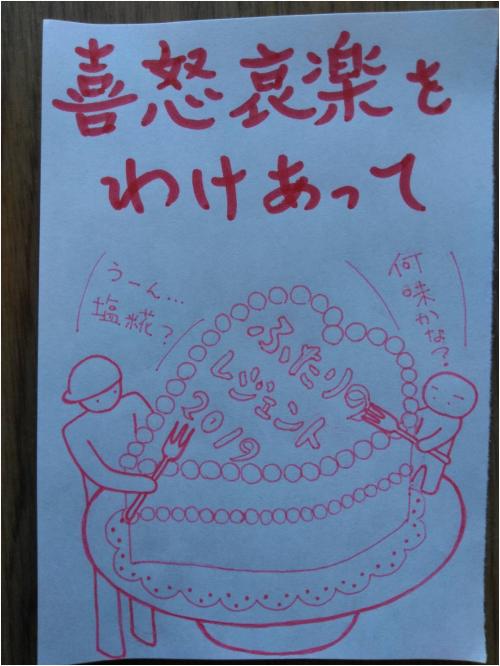 喜怒哀楽を
わけあって
何味かな?
うーん…
塩糀?
ふたりの
レジェンド
2019